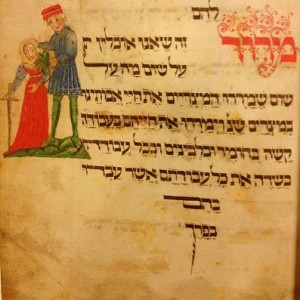 להם
מרור
זה שאנו אוכלין
על שום מה על
שום שמררו המצריים את חיי אבותינו
במצרים שנ׳ וימררו את חייהם בעבודה
קשה בחומר ובלבנים ובכל עבודה
בשדה את כל עבודתם אשר עבדו
בהם
בפרך